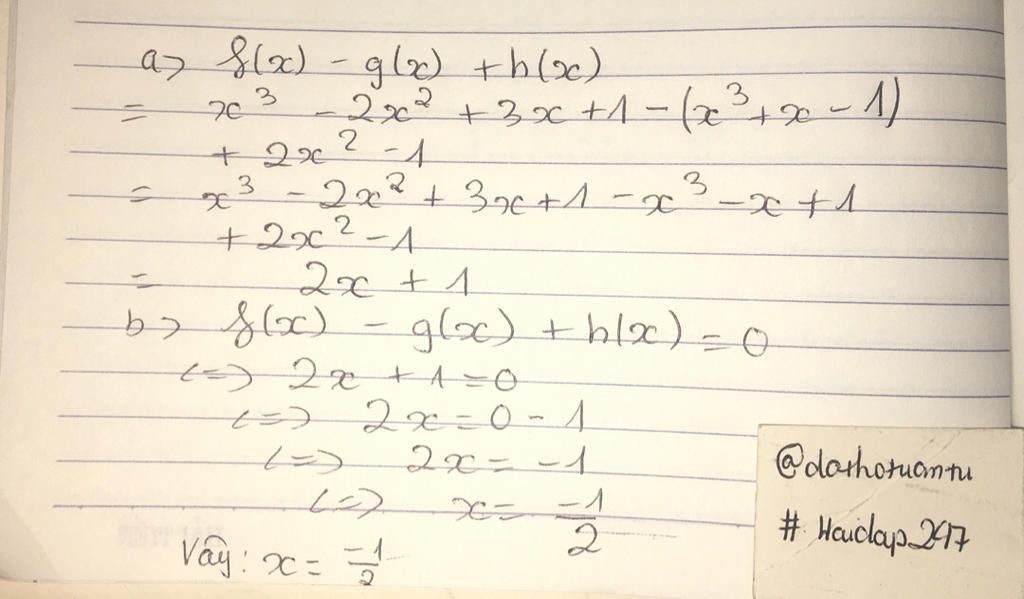 a> f(x) - g(x) + h(x)
= x³ - 2x² + 3x + 1 - (x³ + x - 1)
+ 2x² - 1
= x³ - 2x² + 3x + 1 - x³ - x + 1
+ 2x² - 1
= 2x + 1
b> f(x) - g(x) + h(x) = 0
<=> 2x + 1 = 0
<=> 2x = 0 - 1
<=> 2x = -1
<=> x = -1/2
Vậy: x = -1/2
@dathotuantu
# Hoidap247